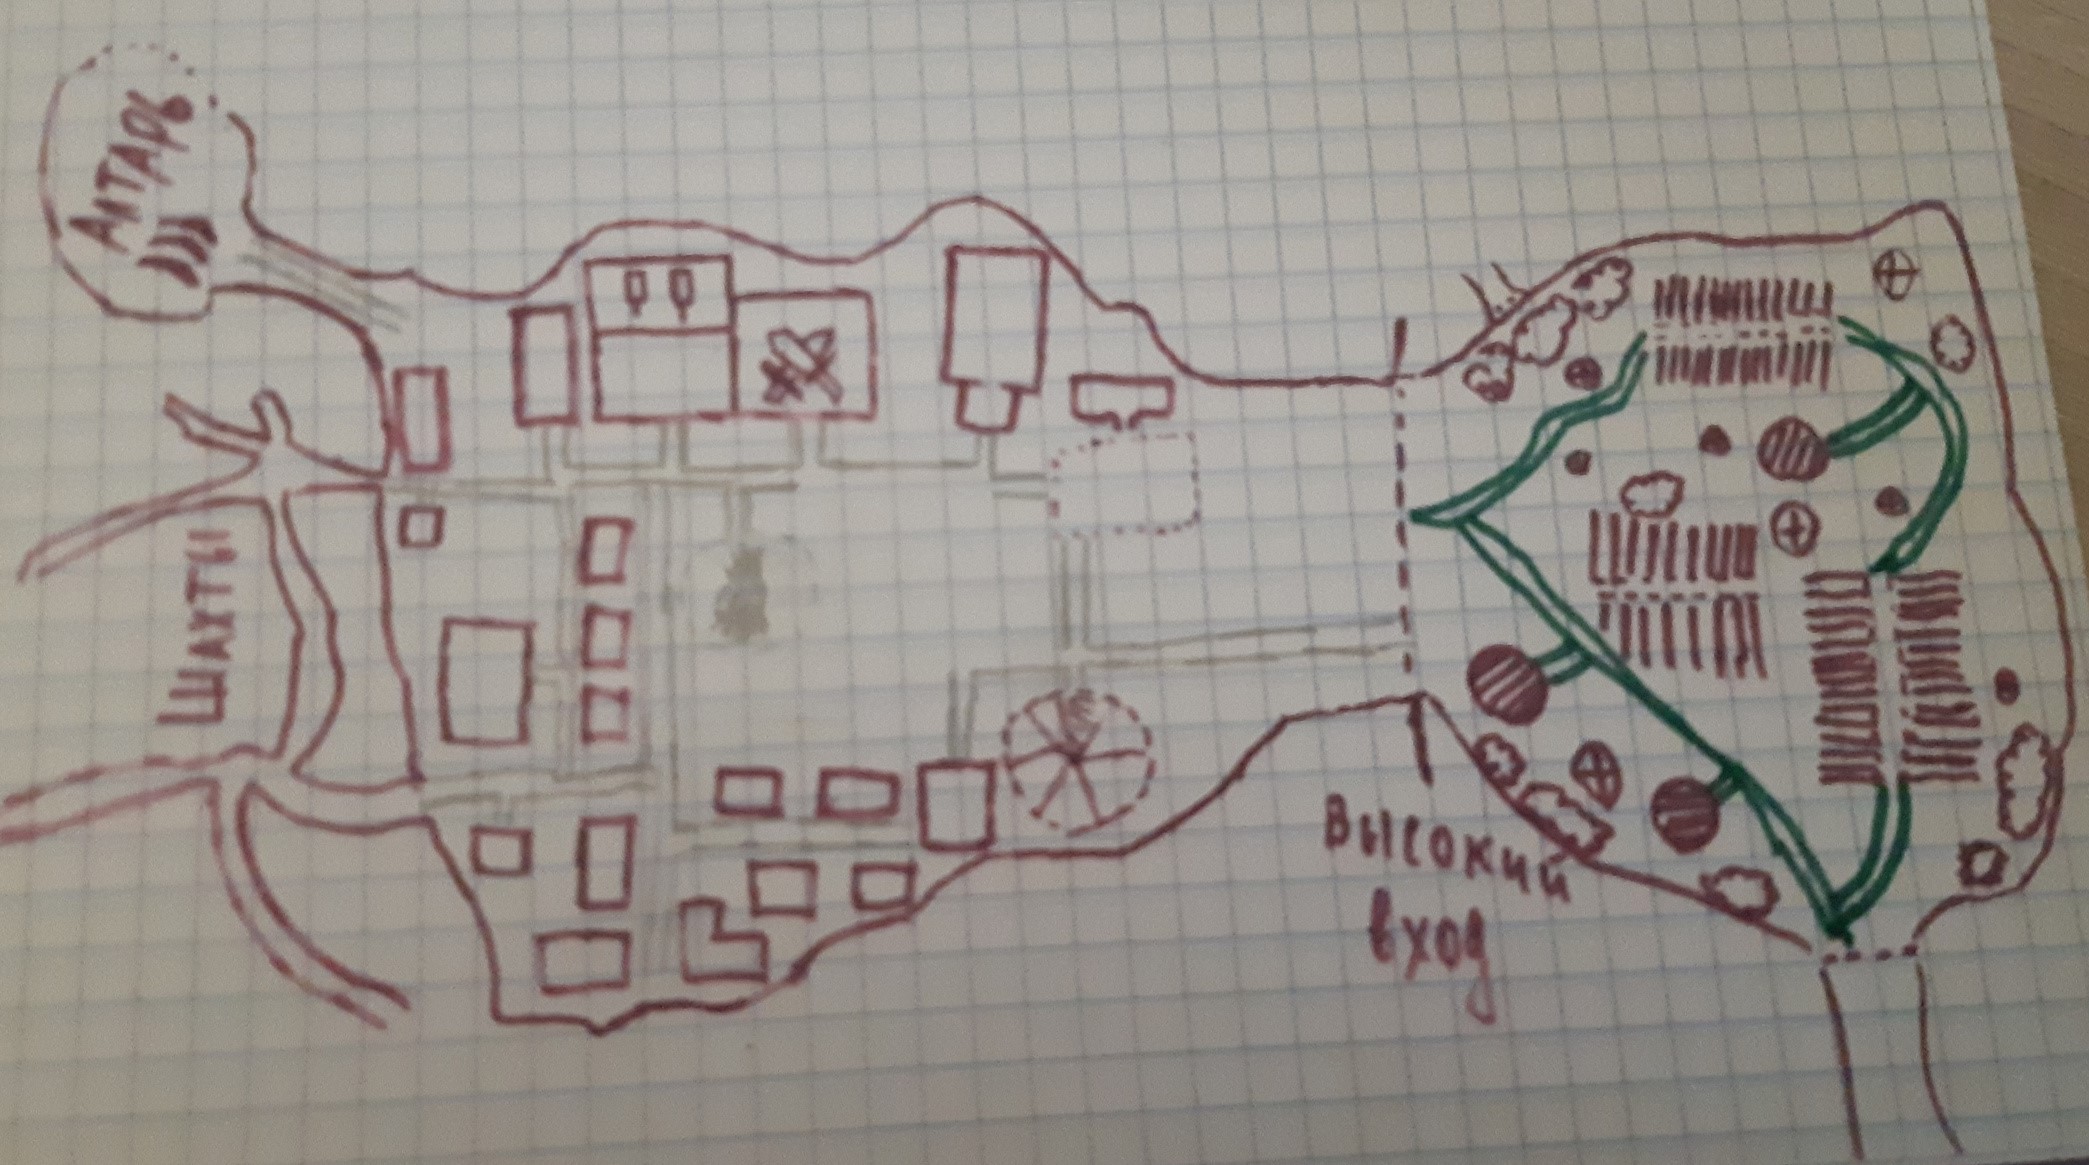 Алтарь
Шахты
Высокий
вход